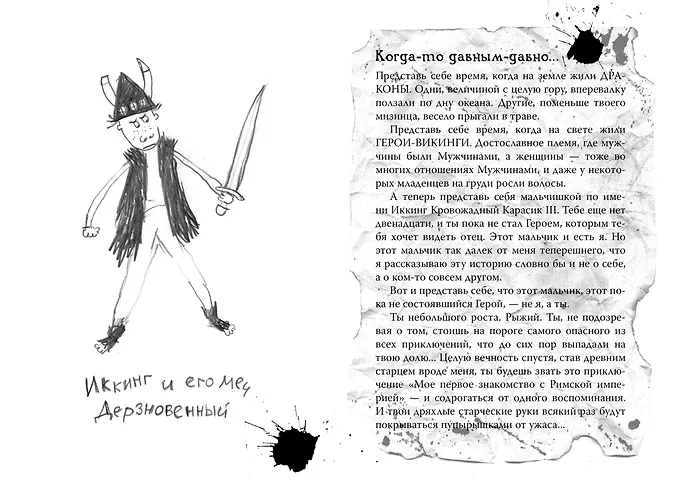 Иккинг и его меч
Дерзновенный
Когда-то давным-давно...
Представь себе время, когда на земле жили ДРА-
КОНЫ. Одни, величиной с целую гору, вперевалку
ползали по дну океана. Другие, поменьше твоего
мизинца, весело прыгали в траве.
Представь себе время, когда на свете жили
ГЕРОИ-ВИКИНГИ. Достославное племя, где муж-
чины были Мужчинами, а женщины — тоже во
многих отношениях Мужчинами, и даже у некото-
рых младенцев на груди росли волосы.
А теперь представь себя мальчишкой по име-
ни Иккинг Кровожадный Карасик III. Тебе еще нет
двенадцати, и ты пока не стал Героем, которым те-
бя хочет видеть отец. Этот мальчик и есть я. Но
этот мальчик так далек от меня теперешнего, что
я рассказываю эту историю словно бы и не о себе,
а о ком-то совсем другом.
Вот и представь себе, что этот мальчик, этот по-
ка не состоявшийся Герой, — не я, а ты.
Ты небольшого роста. Рыжий. Ты, не подозре-
вая о том, стоишь на пороге самого опасного из
всех приключений, что до сих пор выпадали на
твою долю... Целую вечность спустя, став древним
старцем вроде меня, ты будешь звать это приклю-
чение «Мое первое знакомство с Римской импе-
рией» — и содрогаться от одного воспоминания.
И твои дряхлые старческие руки всякий раз будут
покрываться пупырышками от ужаса...